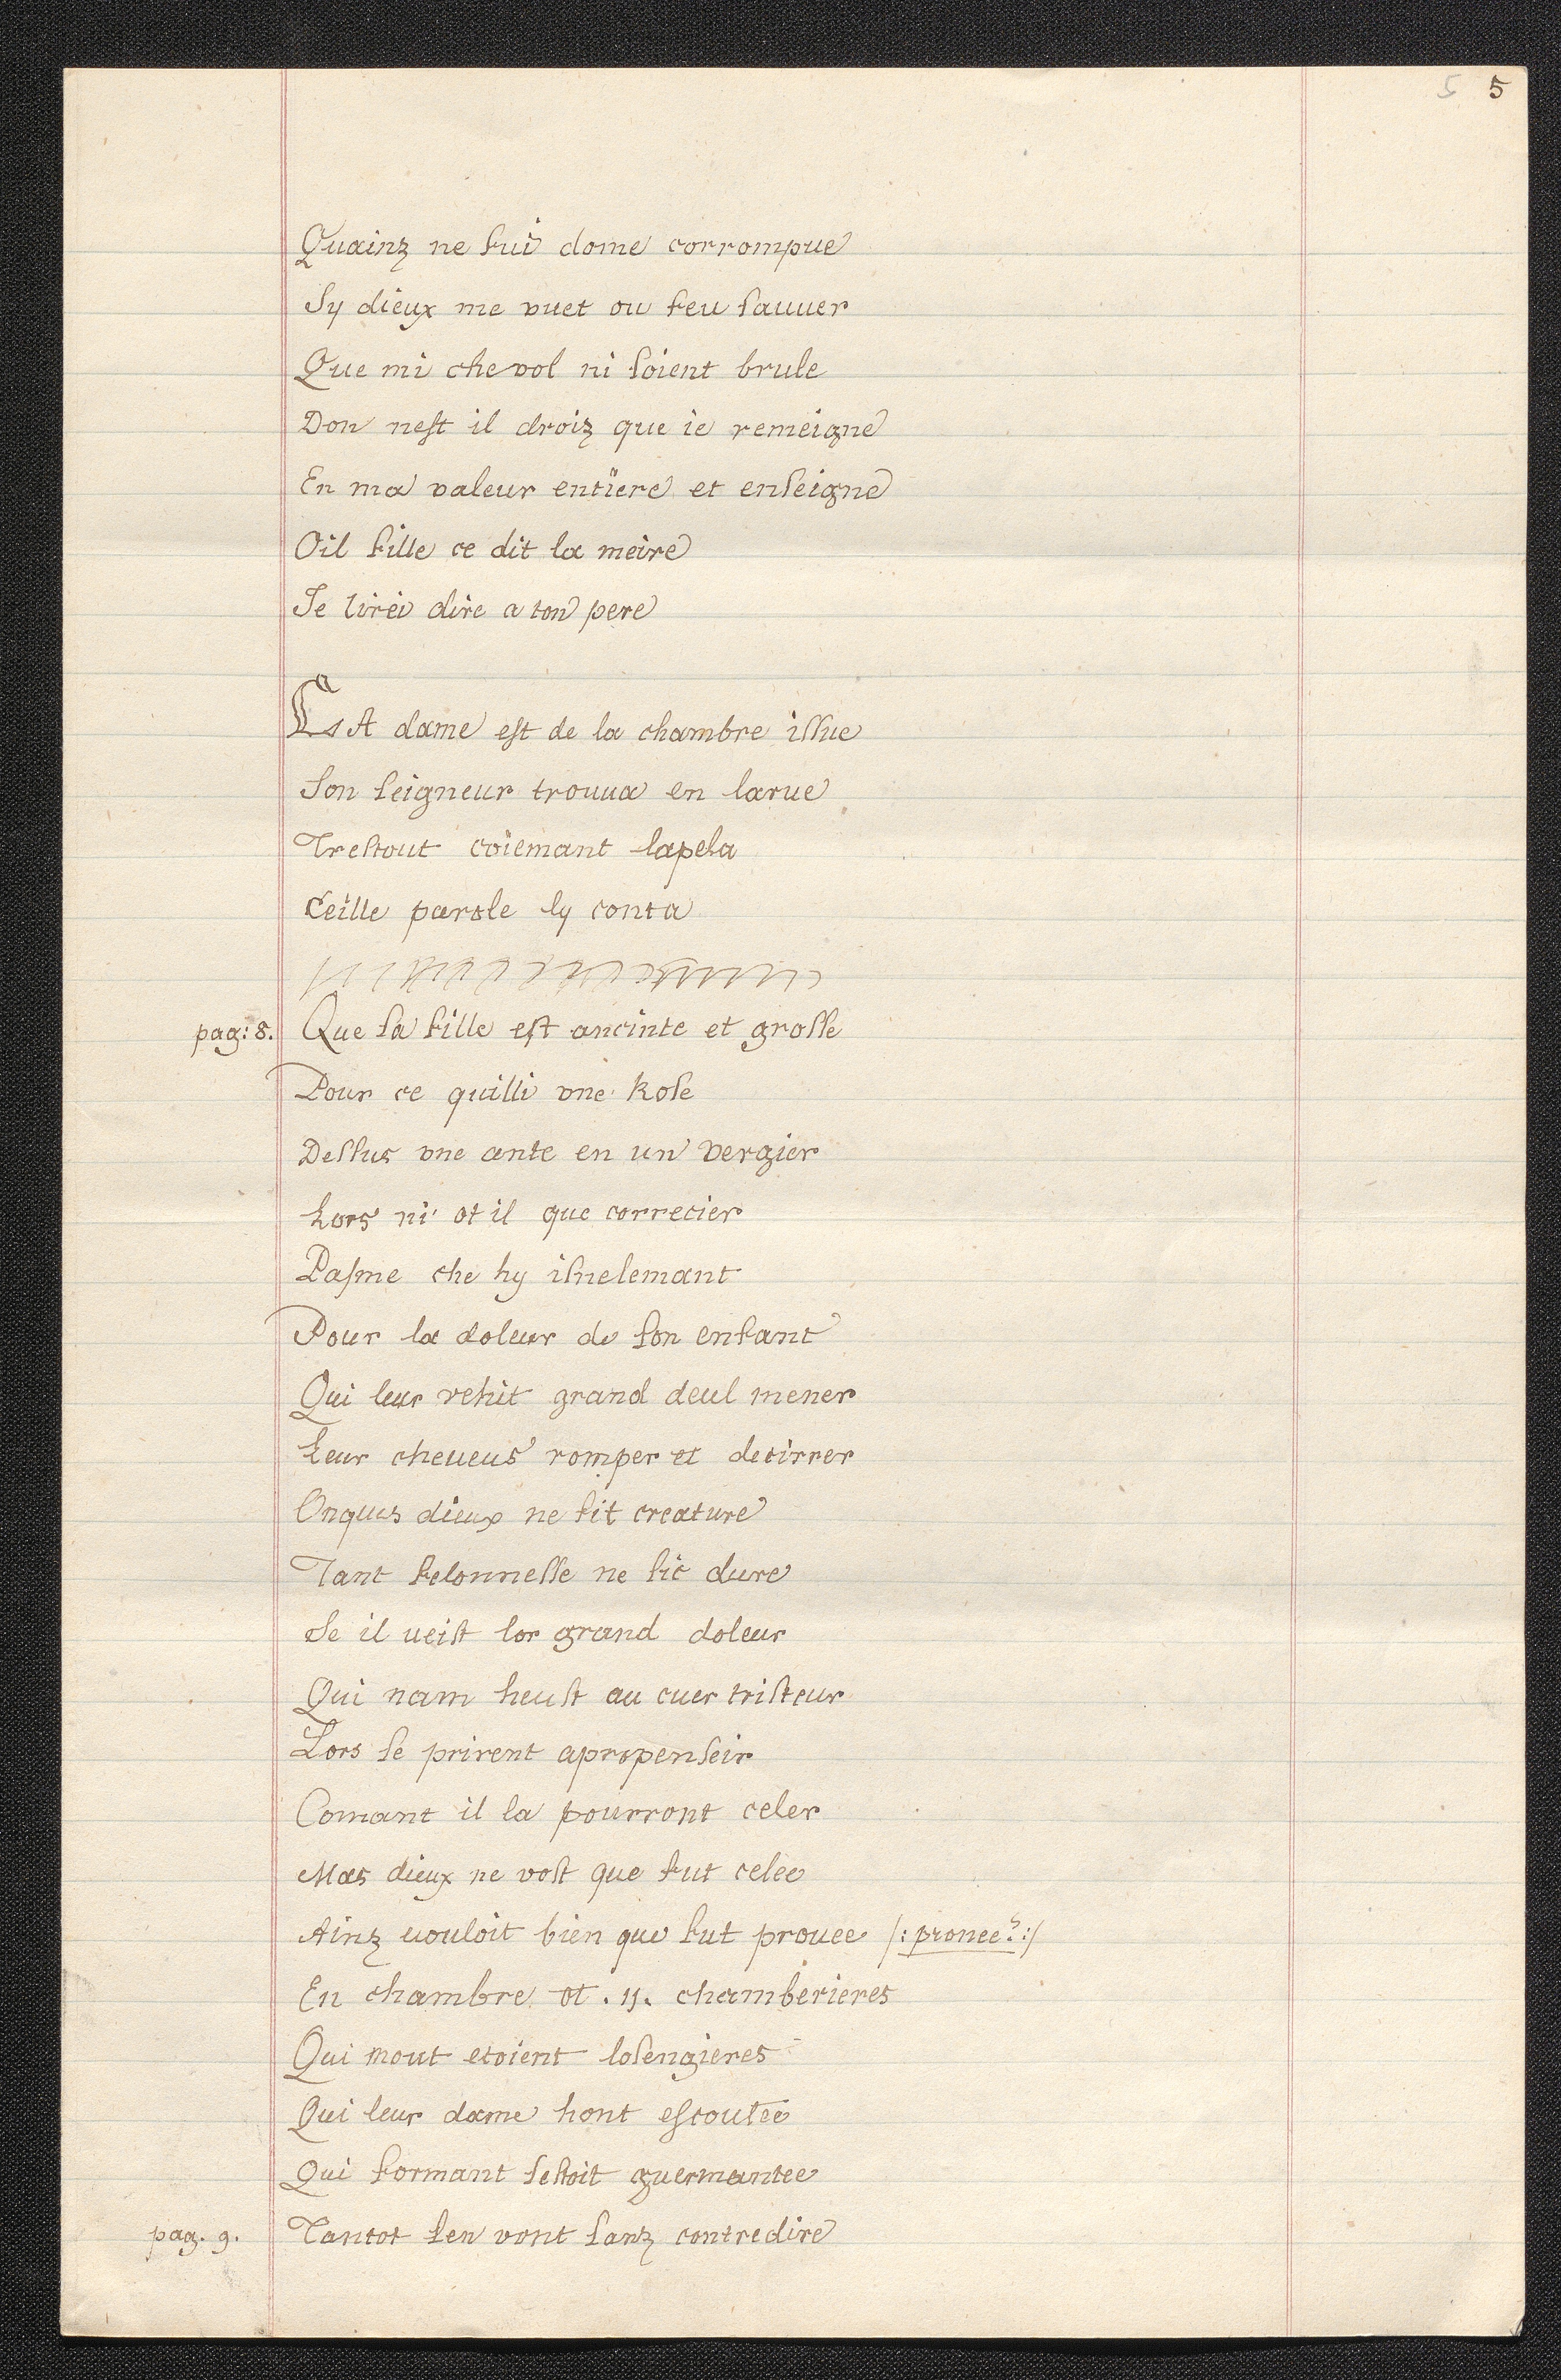 5 5
Quainz ne fui dome corrompue
Sy dieux me vuet ou feu sauuer
Que mi chevol ni soient brule
Don nest il droiz que ie remeigne
En ma valeur entiere et enseigne
Oil fille ce dit la meire
Je lirei dire a ton pere
LA dame est de la chambre issue
Son seigneur trouua en larue
Trestout coiemant lapela
Ceille parole ly conta
pag: 8. Que sa fille est ancinte et grosse
Pour ce quilli vne Rose
Dessus vne ante en un vergier
Lors ni ot il que correcier
Pasme che hy isnelemant
Pour la doleur de son enfant
Qui leur vehit grand deul mener
Leur cheueus romper et detirrer
Onques dieux ne fit creature
Tant felonnesse ne sic dure
Se il ueist lor grand doleur
Qui nam heust au cuer tristeur
Lors se prirent apropenseir
Comant il la pourront celer
Mas dieux ne vost que fut celee
Ainz uouloit bien que fut prouee /: pronee? :/
En chambre ot . ij . chamberieres
Qui mout etoient losengieres
Qui leur dame hont escoutee
Qui formant sestoit guermantee
pag. 9. Tantot sen vont sanz contredire